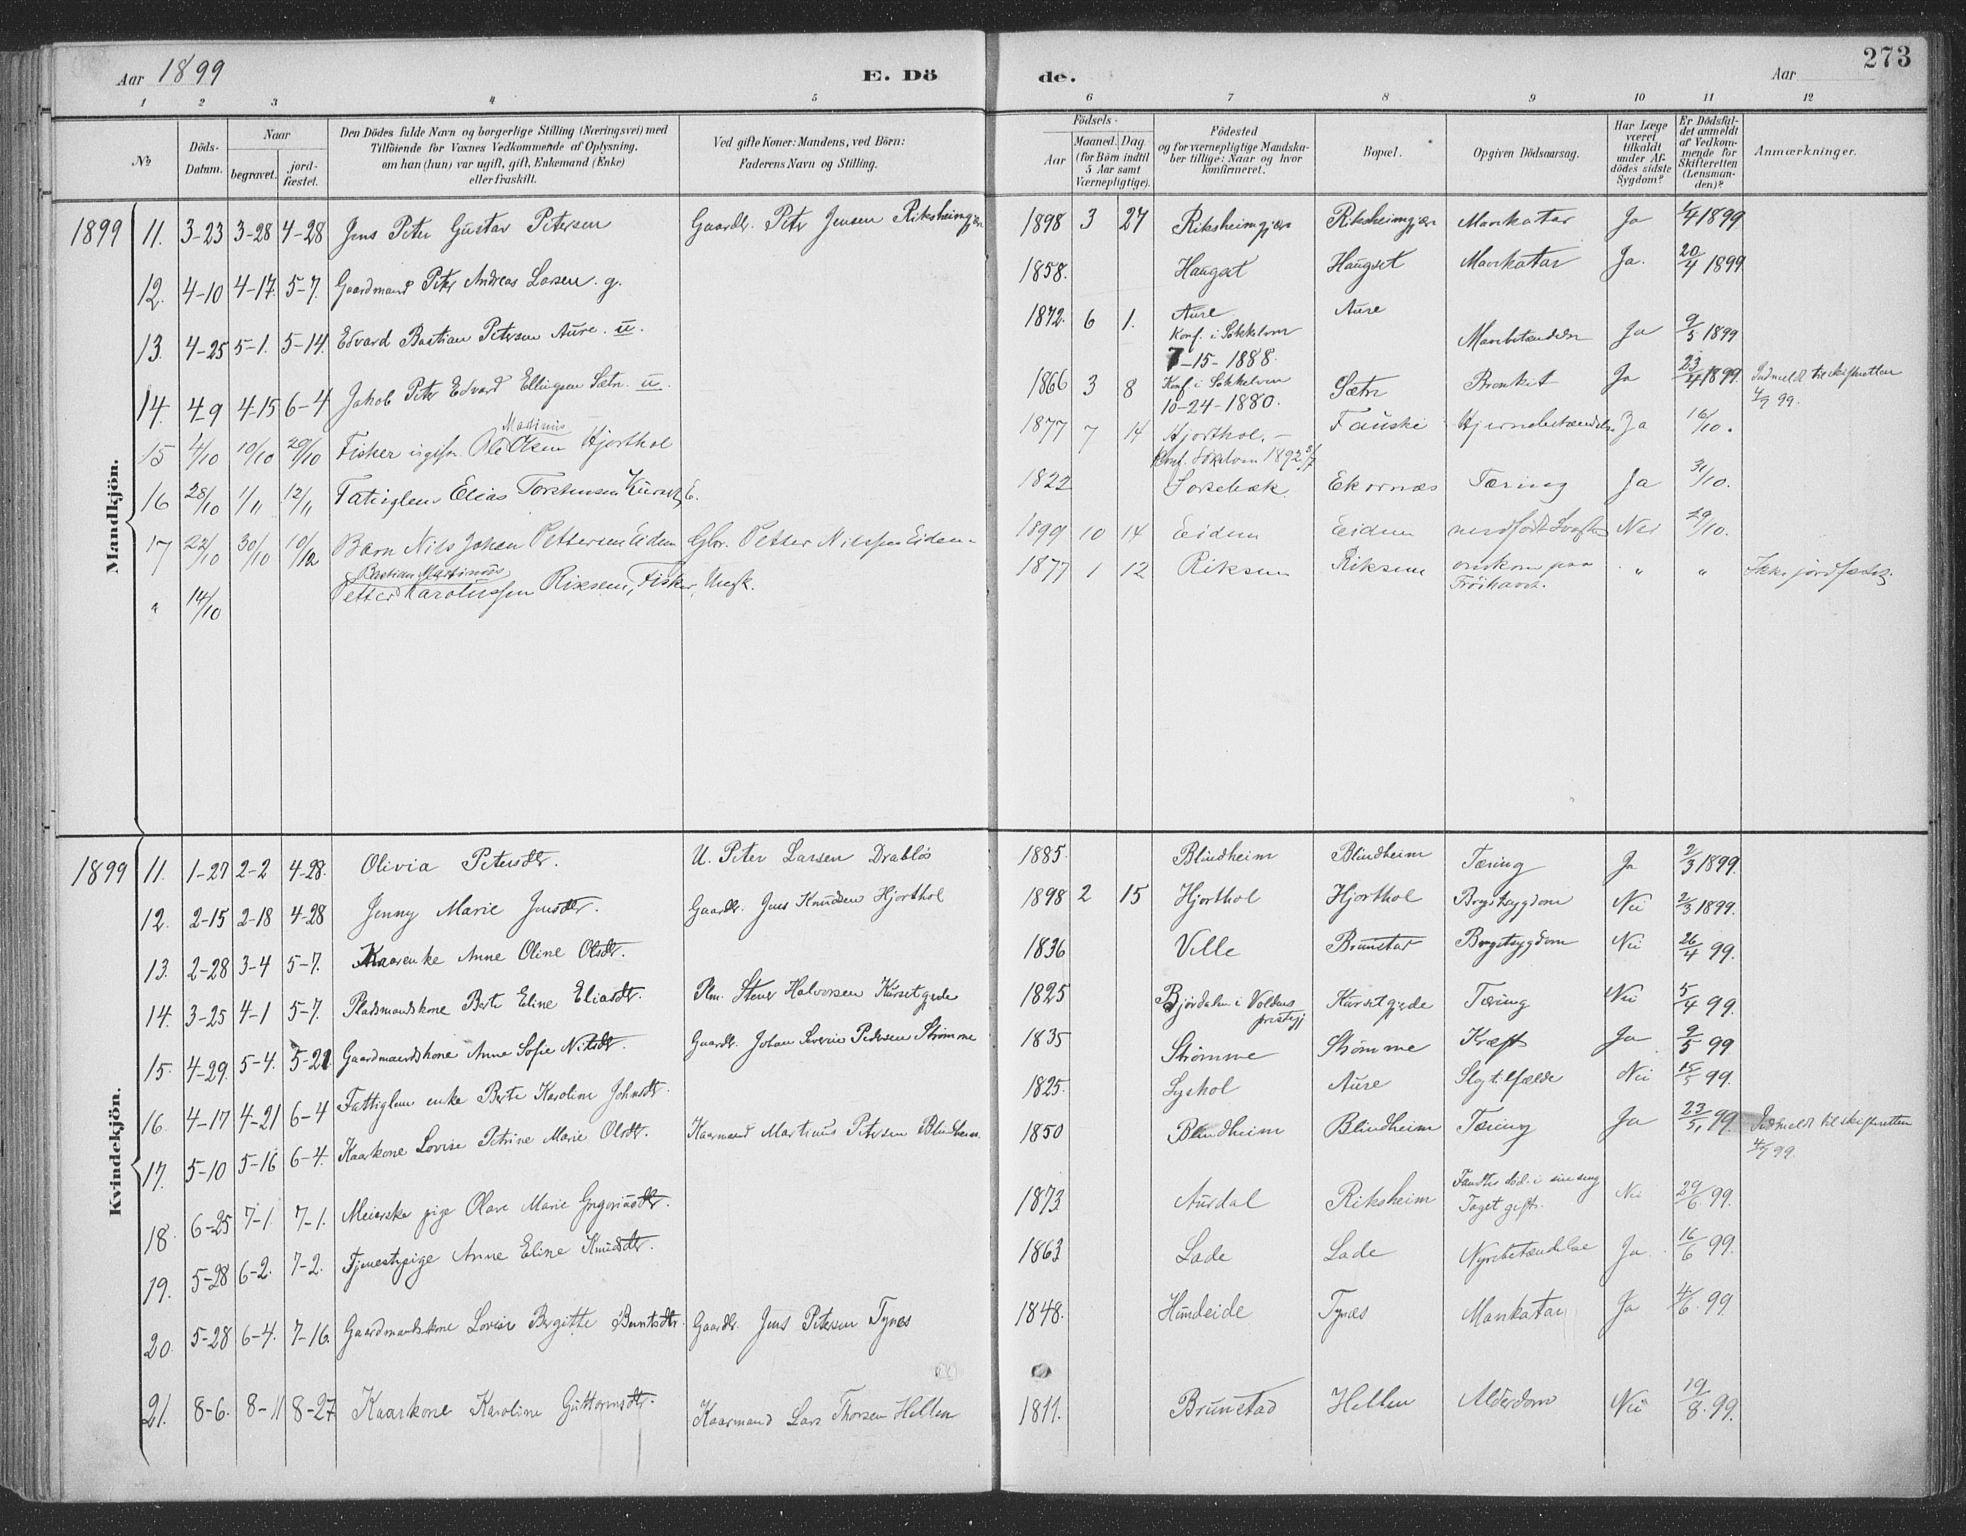 Aar 1899 E. Dö
de. Aar 273
1 2 3 4 5 6 7 8 9 10 11 12
No
Döds-Datum.
Naar
begravet. jord-fæstet.
Den Dödes fulde Navn og borgerlige Stilling (Næringsvei) med
Tilföiende for Voxnes Vedkommende af Oplysning,
om han (hun) var ugift, gift, Enkemand (Enke)
eller fraskilt.
Ved gifte Koner: Mandens, ved Börn:
Faderens Navn og Stilling.
Födsels-
Aar Maaned. Dag.
(for Börn indtil
5 Aar samt
Værnepligtige).
Födested
og for værnepligtige Mandska-
ber tillige: Naar og hvor
konfirmeret.
Bopæl.
Opgiven Dödsaarsag.
Har Læge
været
tilkaldt
under Af-
dödes sidste
Sygdom?
Er Dödsfal-
det anmeldt
af Vedkom-
mende for
Skifteretten
(Lensman-
den)?
Anmærkninger.
Mandkjön.
1899 11. 3-23 3-28 4-28 Jens Peter Gustav Petersen Gaardbr. Peter Jensen Riksheimgjær 1898 3 27 Riksheimgjær Riksheimgjær Mavekatar Ja 1/4 1899
12. 4-10 4-17. 5-7. Gaardmand Peter Andreas Larsen. g. 1858. Haugset Haugset Mavekatar Ja. 20/4 1899
13. 4-25 5-1. 5-14. Edvard Bastian Petersen Aure. u. 1872. 6 1. Aure Konf. i Søkkelven 7-15-1888. Aure Mavebetændelse Ja 9/5 1899
14. 4-9 4-15 6-4 Jakob Peter Edvard Ellingsen Sætre. u. 1866 3 8 Konf. i Søkkelven 10-24-1880. Sætre Bronkit Ja 23/4 1899. Indmeldt til skifteretten 4/9 99.
15 4/10 10/10 29/10 Fisker ugift Ole Martinus Olsen Hjorthol 1877 7 14 Hjorthol. - Konf. Søkelven 1892 Fauske Hjernebetændelse Ja 16/10.
16 28/10 1/11 12/11 Fatiglem Elias Torstensen Kurset, E. 1822 Sorsebæk Ekornæs Tæring Ja 31/10.
17 22/10 30/10 10/12 Barn Nils Johan Pettersen Eidem Gbr. Petter Nilssen Eidem 1899 10 14 Eidem Eidem medfødt Svagh. Nei 29/10.
" 14/10 Petter Bastian Martinus Karolussen Riksem, Fisker, Ungk. 1877 1 12 Riksem Riksem omkom paa Frøihavet. " " Ikke jordfæstet.
Kvindekjön.
1899 11. 1-27 2-2 4-28. Olivia Petersdtr. U. Peter Larsen Drabløs 1885. Blindheim Blindheim Tæring Ja 2/3 1899.
12. 2-15 2-18 4-28 Jenny Marie Jensdtr. Gaardbr. Jens Knudsen Hjorthol 1898 2 15 Hjorthol Hjorthol Brystsygdom Nei 2/3 1899.
13. 2-28 3-4 5-7. Kaarenke Anne Oline Olsdtr. 1836 Velle Brunstad Brystsygdom Nei 26/4 99.
14. 3-25 4-1 5-7. Pladsmandskone Berte Eline Eliasdtr. Plm. Stener Halvorsen Kursetgjede 1825 Bjørdalen i Voldens prestegj Kursetgjede Tæring Nei 5/4 99.
15. 4-29. 5-4. 5-21 Gaardmandskone Anne Sofie Nilsdtr. Gaardbr. Johan Severin Pedersen Strømme 1835 Strømme Strømme Kræft Ja 9/5 99
16. 4-17 4-21 6-4 Fattiglem enke Berte Karoline Johnsdtr. 1825. Lyshol Aure Slagtilfælde Nei 15/5 99.
17. 5-10 5-16 6-4. Kaarkone Lovise Petrine Marie Olsdtr. Kaarmand Martinus Petersen Blindheim. 1850 Blindheim Blindheim Tæring Ja 23/5 99. Indmeldt til skifteretten 4/7 99.
18. 6-25 7-1. 7-1. Meierske pige Olave Marie Gregoriusdtr. 1873 Aursdal Riksheim Fandtes död i sin seng Taget gift. Nei 29/6 99.
19. 5-28 6-2. 7-2. Tjenestepige Anne Eline Knudsdtr. 1863 Lade Lade Nyrebetændelse Ja. 16/6 99.
20. 5-28 6-4. 7-16. Gaardmandskone Lovise Bergitte Berntsdtr. Gaardbr. Jens Petersen Tynes 1848. Hundeide Tynes Mavekatar Ja 4/6. 99
21. 8-6. 8-11 8-27 Kaarkone Karoline Guttormsdtr. Kaarmand Lars Thorsen Hellen 1811. Brunstad Hellen Alderdom Nei 19/8. 99.